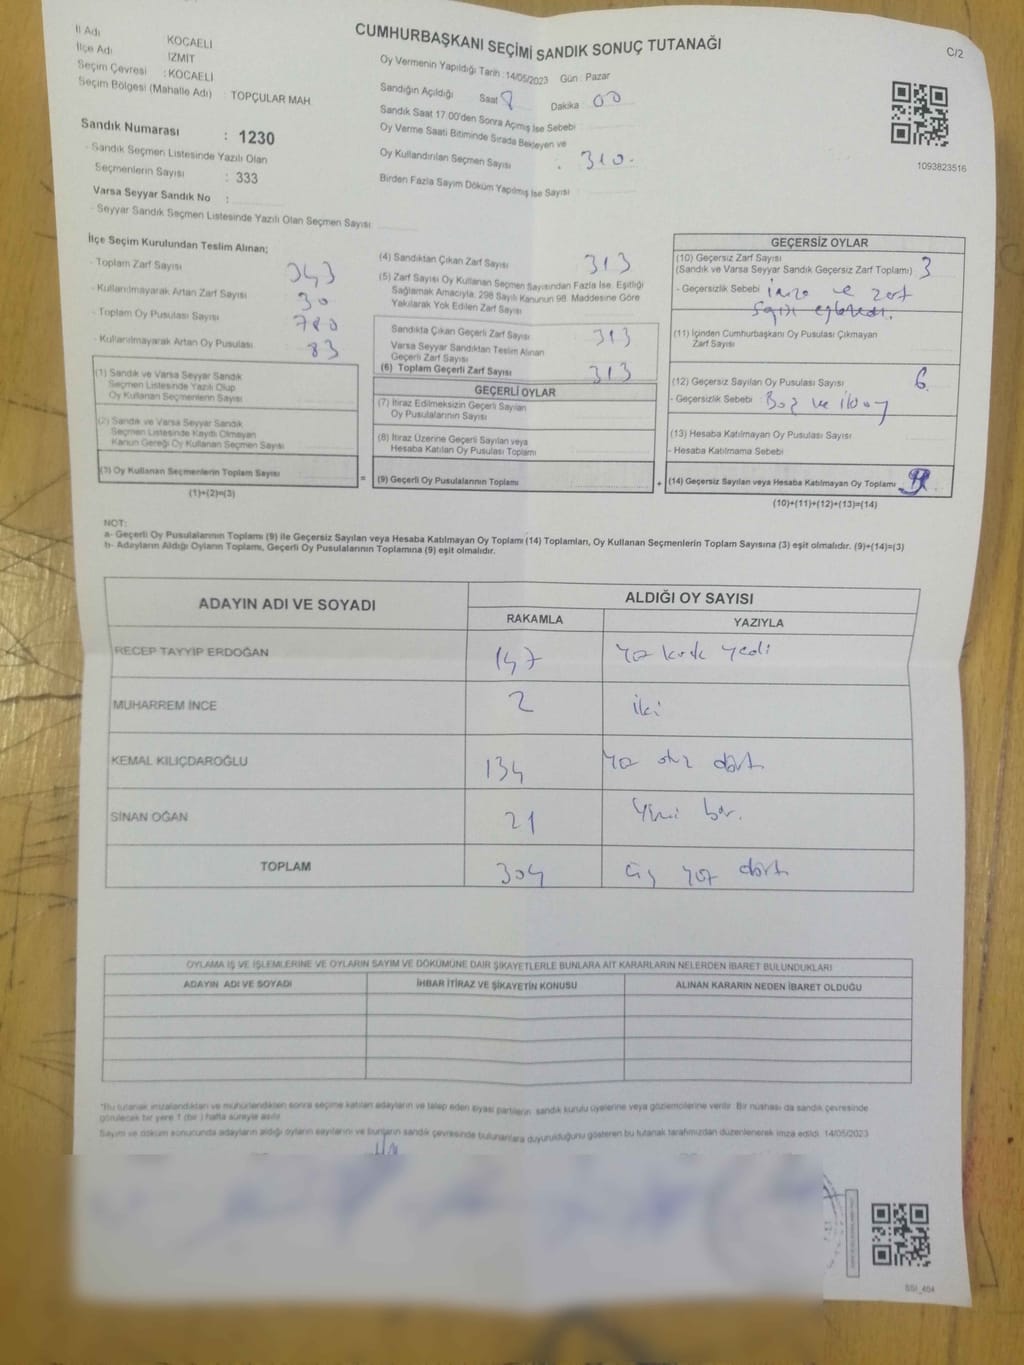 CUMHURBAŞKANI SEÇİMİ SANDIK SONUÇ TUTANAĞI
C/2
İl Adı KOCAELİ
İlçe Adı İZMİT
Seçim Çevresi : KOCAELİ
Seçim Bölgesi (Mahalle Adı) : TOPÇULAR MAH.
Sandık Numarası : 1230
- Sandık Seçmen Listesinde Yazılı Olan
Seçmenlerin Sayısı : 333
Varsa Seyyar Sandık No :
- Seyyar Sandık Seçmen Listesinde Yazılı Olan Seçmen Sayısı
Oy Vermenin Yapıldığı Tarih : 14/05/2023 Gün : Pazar
Sandığın Açıldığı Saat 8 Dakika 00
Sandık Saat 17.00'den Sonra Açılmış İse Sebebi
Oy Verme Saati Bitiminde Sırada Bekleyen ve
Oy Kullandırılan Seçmen Sayısı : 310.
Birden Fazla Sayım Döküm Yapılmış İse Sayısı
1093823516
İlçe Seçim Kurulundan Teslim Alınan;
- Toplam Zarf Sayısı 343
- Kullanılmayarak Artan Zarf Sayısı 30
- Toplam Oy Pusulası Sayısı 780
- Kullanılmayarak Artan Oy Pusulası 83
(1) Sandık ve Varsa Seyyar Sandık
Seçmen Listesinde Yazılı Olup
Oy Kullanan Seçmenlerin Sayısı
(2) Sandık ve Varsa Seyyar Sandık
Seçmen Listesinde Kaydı Olmayan
Kanun Gereği Oy Kullanan Seçmen Sayısı
(3) Oy Kullanan Seçmenlerin Toplam Sayısı
(1)+(2)=(3)
(4) Sandıktan Çıkan Zarf Sayısı 313
(5) Zarf Sayısı Oy Kullanan Seçmen Sayısından Fazla İse, Eşitliği
Sağlamak Amacıyla, 298 Sayılı Kanunun 98. Maddesine Göre
Yakılarak Yok Edilen Zarf Sayısı
Sandıkta Çıkan Geçerli Zarf Sayısı 313
Varsa Seyyar Sandıktan Teslim Alınan
Geçerli Zarf Sayısı
(6) Toplam Geçerli Zarf Sayısı 313
GEÇERLİ OYLAR
(7) İtiraz Edilmeksizin Geçerli Sayılan
Oy Pusulalarının Sayısı
(8) İtiraz Üzerine Geçerli Sayılan veya
Hesaba Katılan Oy Pusulası Toplamı
= (9) Geçerli Oy Pusulalarının Toplamı
GEÇERSİZ OYLAR
(10) Geçersiz Zarf Sayısı
(Sandık ve Varsa Seyyar Sandık Geçersiz Zarf Toplamı) 3
- Geçersizlik Sebebi imza ve zarf
sayısı
(11) İçinden Cumhurbaşkanı Oy Pusulası Çıkmayan
Zarf Sayısı
(12) Geçersiz Sayılan Oy Pusulası Sayısı 6.
- Geçersizlik Sebebi Boş ve
(13) Hesaba Katılmayan Oy Pusulası Sayısı
- Hesaba Katılmama Sebebi
+ (14) Geçersiz Sayılan veya Hesaba Katılmayan Oy Toplamı
(10)+(11)+(12)+(13)=(14)
NOT:
a- Geçerli Oy Pusulalarının Toplamı (9) ile Geçersiz Sayılan veya Hesaba Katılmayan Oy Toplamı (14) Toplamları, Oy Kullanan Seçmenlerin Toplam Sayısına (3) eşit olmalıdır. (9)+(14)=(3)
b- Adayların Aldığı Oyların Toplamı, Geçerli Oy Pusulalarının Toplamına (9) eşit olmalıdır.
ADAYIN ADI VE SOYADI ALDIĞI OY SAYISI
RAKAMLA YAZIYLA
RECEP TAYYİP ERDOĞAN 147 yüz kırk yedi
MUHARREM İNCE 2 iki
KEMAL KILIÇDAROĞLU 134 yüz otuz dört
SİNAN OĞAN 21 yirmi bir.
TOPLAM 304 üç yüz dört
OYLAMA İŞ VE İŞLEMLERİNE VE OYLARIN SAYIM VE DÖKÜMÜNE DAİR ŞİKAYETLERLE BUNLARA AİT KARARLARIN NELERDEN İBARET BULUNDUKLARI
ADAYIN ADI VE SOYADI İHBAR İTİRAZ VE ŞİKAYETİN KONUSU ALINAN KARARIN NEDEN İBARET OLDUĞU
*Bu tutanak imzalandıktan ve mühürlendikten sonra seçime katılan adayların ve talep eden siyasi partilerin sandık kurulu üyelerine veya gözlemcilerine verilir. Bir nüshası da sandık çevresinde
görülecek bir yere 1 (bir) hafta süreyle asılır.
Sayım ve döküm sonucunda adayların aldığı oyların sayılarını ve bunların sandık çevresinde bulunanlara duyurulduğunu gösteren bu tutanak tarafımızdan düzenlenerek imza edildi. 14/05/2023
SSI_404